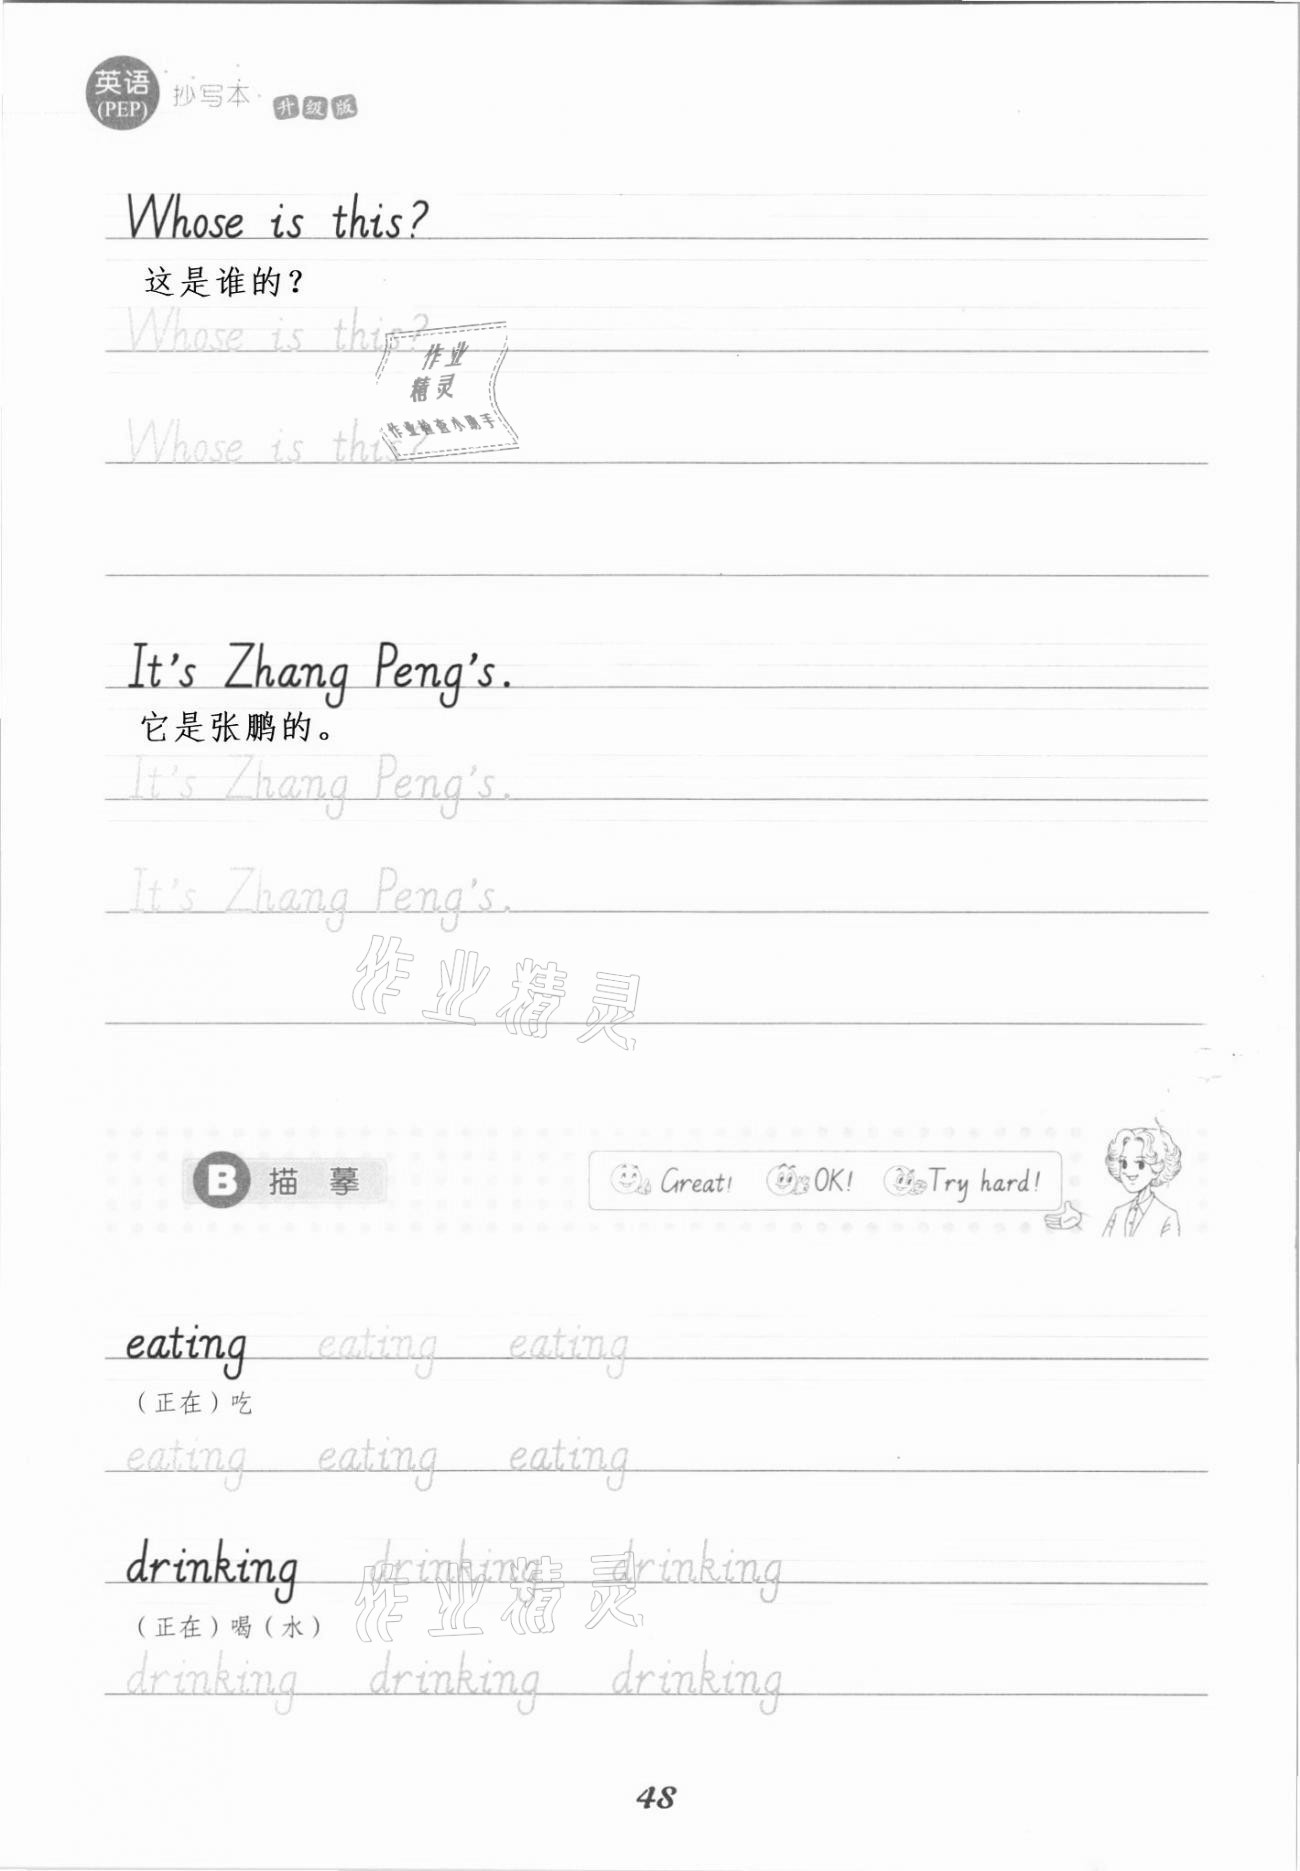 英语
(PEP)
抄写本
升级版
Whose is this?
这是谁的？
Whose is this?
作业
精灵
作业检查小助手
Whose is this?
It's Zhang Peng's.
它是张鹏的。
It's Zhang Peng's.
It's Zhang Peng's.
作业精灵
B 描 摹
Great! OK! Try hard!
eating eating eating
（正在）吃
eating eating eating
drinking drinking drinking
作业精灵
（正在）喝（水）
drinking drinking drinking
48